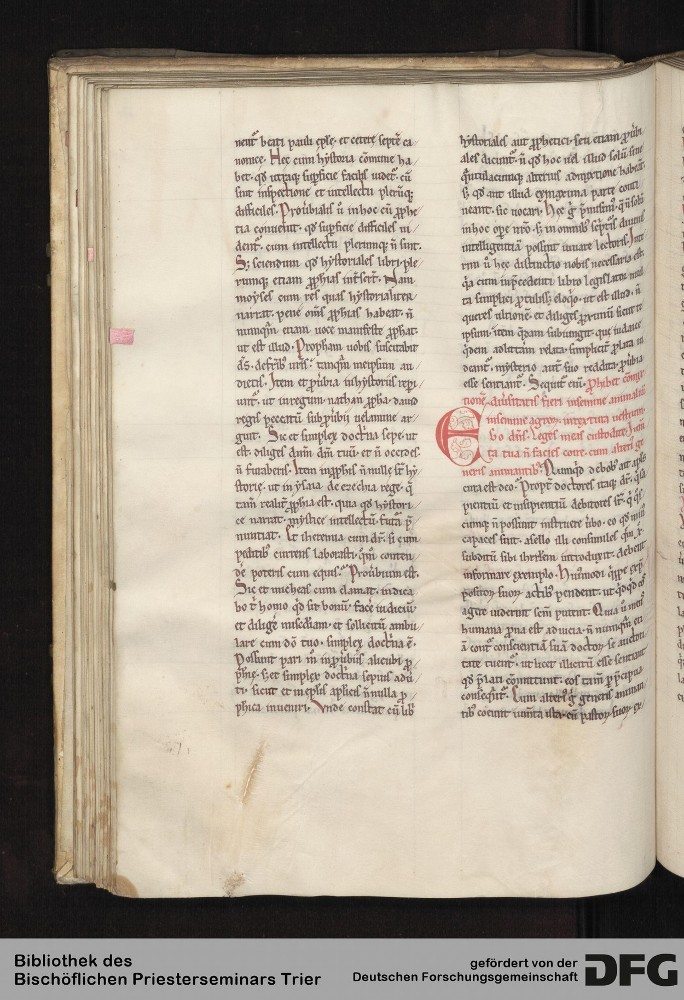 neut᷑ beati pauli ep̄le · et cetere septē ca
nonice · Hec cum hystoria cōmune ha
bet · qđ utraq; suꝑficie facilis uideť · cū
sint inspectione et intellectu pleruq;
difficiles · Prouerbialis ū in hoc cū ꝓphe
tia conuenit · qđ suꝑficie difficiles ui
dent᷑ · cum intellectu plerumq; ñ sint ·
S; sciendum qđ hystoriales libri ple
rumq; etiam ꝓphias insert᷑ · Nam
moyses cum res quas hystorialiter
narrat · pene om̄s ꝓphias habeat · ñ
nunquā etiam uoce manifeste ꝓphat ·
ut est illud · Propham uobis suscitabit
d̄s · de fr̄ib; ur̄is · tanquā meipsum au
dietis · Item et ꝓuerbia in hystoriis repi
unt᷑ · ut in regum nathan ꝓpha · dauid
regis peccatū sub ꝓuerbii uelamine ar
guit · Sic et simplex doctrina sepe · ut
est · diliges dnm̄ dm̄ tuū · et ñ occides
ñ furaberis · Item in ꝓphis ñ nulle st̄ hy
storie · ut in ysaia de ezechia rege · q̄
tam realit᷑ ꝓphia est · quia qđ hystori
ce narrat · mystice intellectū futa p̄
nuntiat · Et iheremia cum dr̄ · si cum
peditib; currens laborasti · qm̄ conten
de poteris cum equis · Prouerbium est ·
Sic et micheas cum clamat · indica
bo t̄ homo qđ sit bonū · facę iudiciū
et diligę misc̄diam · et sollicitū ambu
lare cum dō tuo · simplex doctrina ē ·
Possunt pari m̄ in ꝓuerbiis alicubi ꝓ
phię · s; et simplex doctrina sepius adū
ti · sicut et in eplis aplicis ñ nulla ꝓ
phica inueniri · Unde constat eū lib
hystoriales aut ꝓphetici · seu etiam ꝓuerbi
ales dicunt᷑ · ñ qđ hoc uel illud solū · siue
alterius admixtione habeant
s; qđ aut illud ex maxima parte conti
neant · sic uocari · Hec g̃ p̄misim; ·
in hoc ope nr̄o · s; in omnib; sc̄ptis diuinis
intelligentiā possunt iuuare lectoris · Inte
rim ū hec distinctio nobis necessaria est ·
q̄a cum in p̄cedenti libro legislator
ta simplici ꝓtulisset eloq̄o · ut est illud · ñ
queres ultionē · et diliges ꝓximū sicut te
ipsum · item q̄dam subiungit · que
q̄dem ad litt̄am relata · simplicit᷑ ꝓlata ui
deant᷑ · mysterio aut̄ suo reddita · ꝓuerbia
esse sentiant᷑ · Sequit᷑ eni · Prohibet
nonē · diuersitatis fieri in semine animaliū
in semine agrorum · in textura uestium
E vo dn̄s · Leges meas custodite · Iu
ta tua ñ facies coire · cum alteri ge
neris animantib; · Nunquid de bob; aut
cura est deo · Propt᷑ doctores itaq; dr̄ · q̄
pientiū et insipientiū debitores st̄ ·
cunq; ñ possunt instruere ūbo · eo qđ
capaces sint · asello illi consimiles
subditū sibi ihrlem introduxit · debent
informare exemplo · Hui;modi
positorum suorum actib; pendent · ut
agere uiderint · sem̄ putent · Quia ū
humana ꝓna est ad uicia · ñ nunquā
ā cont᷑ conscientiā suā doctorum se
tate tuent᷑ · ut licet illicitū esse sentiant
qđ p̄lati cōmittunt · eos tam̄
conseq̄nt᷑ · Cum alteri; g̃ generis animan
tib; coeunt ista · cū pastorum suorum
Bibliothek des
Bischöflichen Priesterseminars Trier
gefördert von der
Deutschen Forschungsgemeinschaft DFG